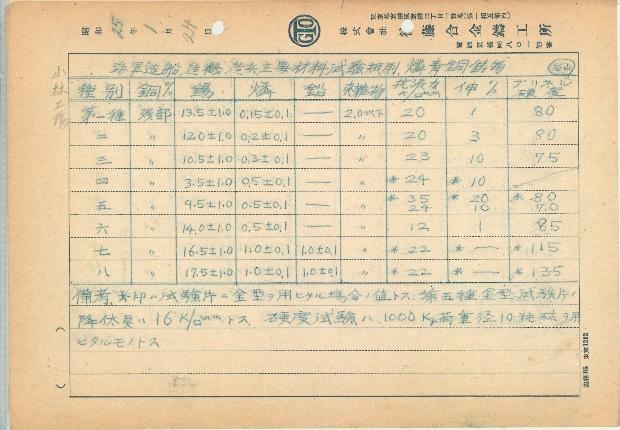 昭和 25年 1月 24日
株式會社 藤合金鑄工所
小林工場
海軍造船造機造兵主要材料試験規則 燐青銅鋳物
種別 銅% 錫% 燐% 鉛 雑物 抗張力 伸% ブリネル硬度
第一種 残部 13.5±1.0 0.15±0.1 — 2.0以下 20 1 80
二 〃 12.0±1.0 0.2±0.1 — 〃 20 3 80
三 〃 10.5±1.0 0.3±0.1 — 〃 23 10 75
四 〃 3.5±1.0 0.5±0.1 — 〃 *24 *10
五 〃 9.5±1.0 0.5±0.1 — 〃 *35 *20 *80
24 10 70
六 〃 14.0±1.0 0.5±0.1 — 〃 12 1 85
七 〃 16.5±1.0 1.0±0.1 1.0±0.1 〃 *22 *— *115
八 〃 17.5±1.0 1.0±0.1 1.0±0.1 〃 *22 *— *135
備考 *印ハ試験片ニ金型ヲ用ヒタル場合ノ値トス 第五種金型試験片ノ
降伏点ハ16K/□mmトス 硬度試験ハ1000Kg荷重径10粍球ヲ用
ヒタルモノトス